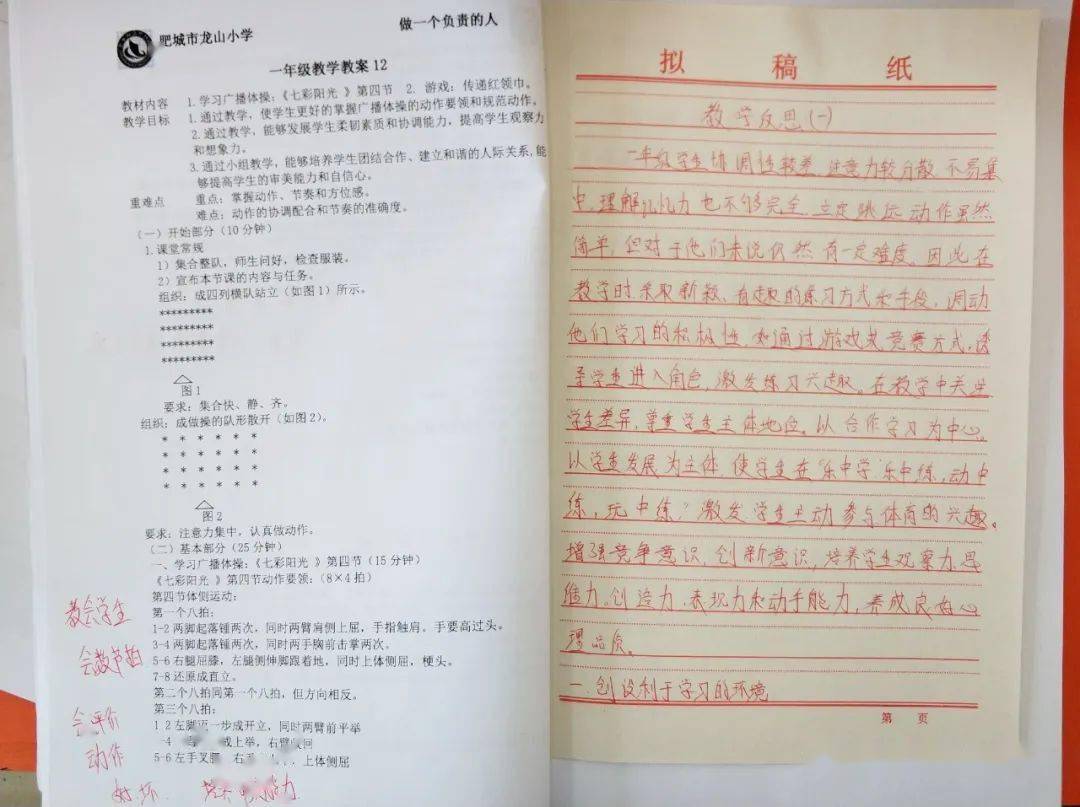 肥城市龙山小学
做一个负责的人
一年级教学教案12
教材内容 1.学习广播体操:《七彩阳光 》第四节 2. 游戏:传递红领巾。
教学目标 1.通过教学,使学生更好的掌握广播体操的动作要领和规范动作。
2.通过教学,能够发展学生柔韧素质和协调能力,提高学生观察力
和想象力。
3.通过小组教学,能够培养学生团结合作、建立和谐的人际关系,能
够提高学生的审美能力和自信心。
重难点 重点:掌握动作、节奏和方位感。
难点:动作的协调配合和节奏的准确度。
(一)开始部分(10分钟)
1.课堂常规
1)集合整队,师生问好,检查服装。
2)宣布本节课的内容与任务。
组织:成四列横队站立(如图1)所示。
*********
*********
*********
*********
图1
要求:集合快、静、齐。
组织:成做操的队形散开(如图2)。
* * * * * *
* * * * * *
* * * * * *
* * * * * *
图2
要求:注意力集中,认真做动作。
(二)基本部分(25分钟)
一、学习广播体操:《七彩阳光 》第四节(15分钟)
《七彩阳光 》第四节动作要领:(8×4拍)
第四节体侧运动:
第一个八拍:
1-2 两脚起落锤两次,同时两臂肩侧上屈,手指触肩。手要高过头。
3-4 两脚起落锤两次,同时两手胸前击掌两次。
5-6 右腿屈膝,左腿侧伸脚跟着地,同时上体侧屈,梗头。
7-8 还原成直立。
第二个八拍同第一个八拍,但方向相反。
第三个八拍:
1 2 左脚迈一步成开立,同时两臂前平举
-4 成上举,右臂 回
5-6 左手叉腰 右 上体侧屈
教会学生
会数节拍
会评价
动作
好坏 能力
拟稿纸
教学反思(一)
一年级学生协调性较差,注意力较分散,不易集
中,理解记忆力也不够完全,立定跳远动作虽然
简单,但对于他们来说仍然有一定难度。因此在
教学时采取新颖、有趣的练习方式和手段,调动
他们学习的积极性,如通过游戏或竞赛方式,诱
导学生进入角色,激发练习兴趣。在教学中关注
学生差异,尊重学生主体地位。以合作学习为中心。
以学生发展为主体,使学生在“乐中学”乐中练,动中
练,玩中练”激发学生主动参与体育的兴趣。
增强竞争意识,创新意识,培养学生观察力,思
维力,创造力,表现力和动手能力,养成良好心
理品质。
一.创设利于学习的环境
第 页